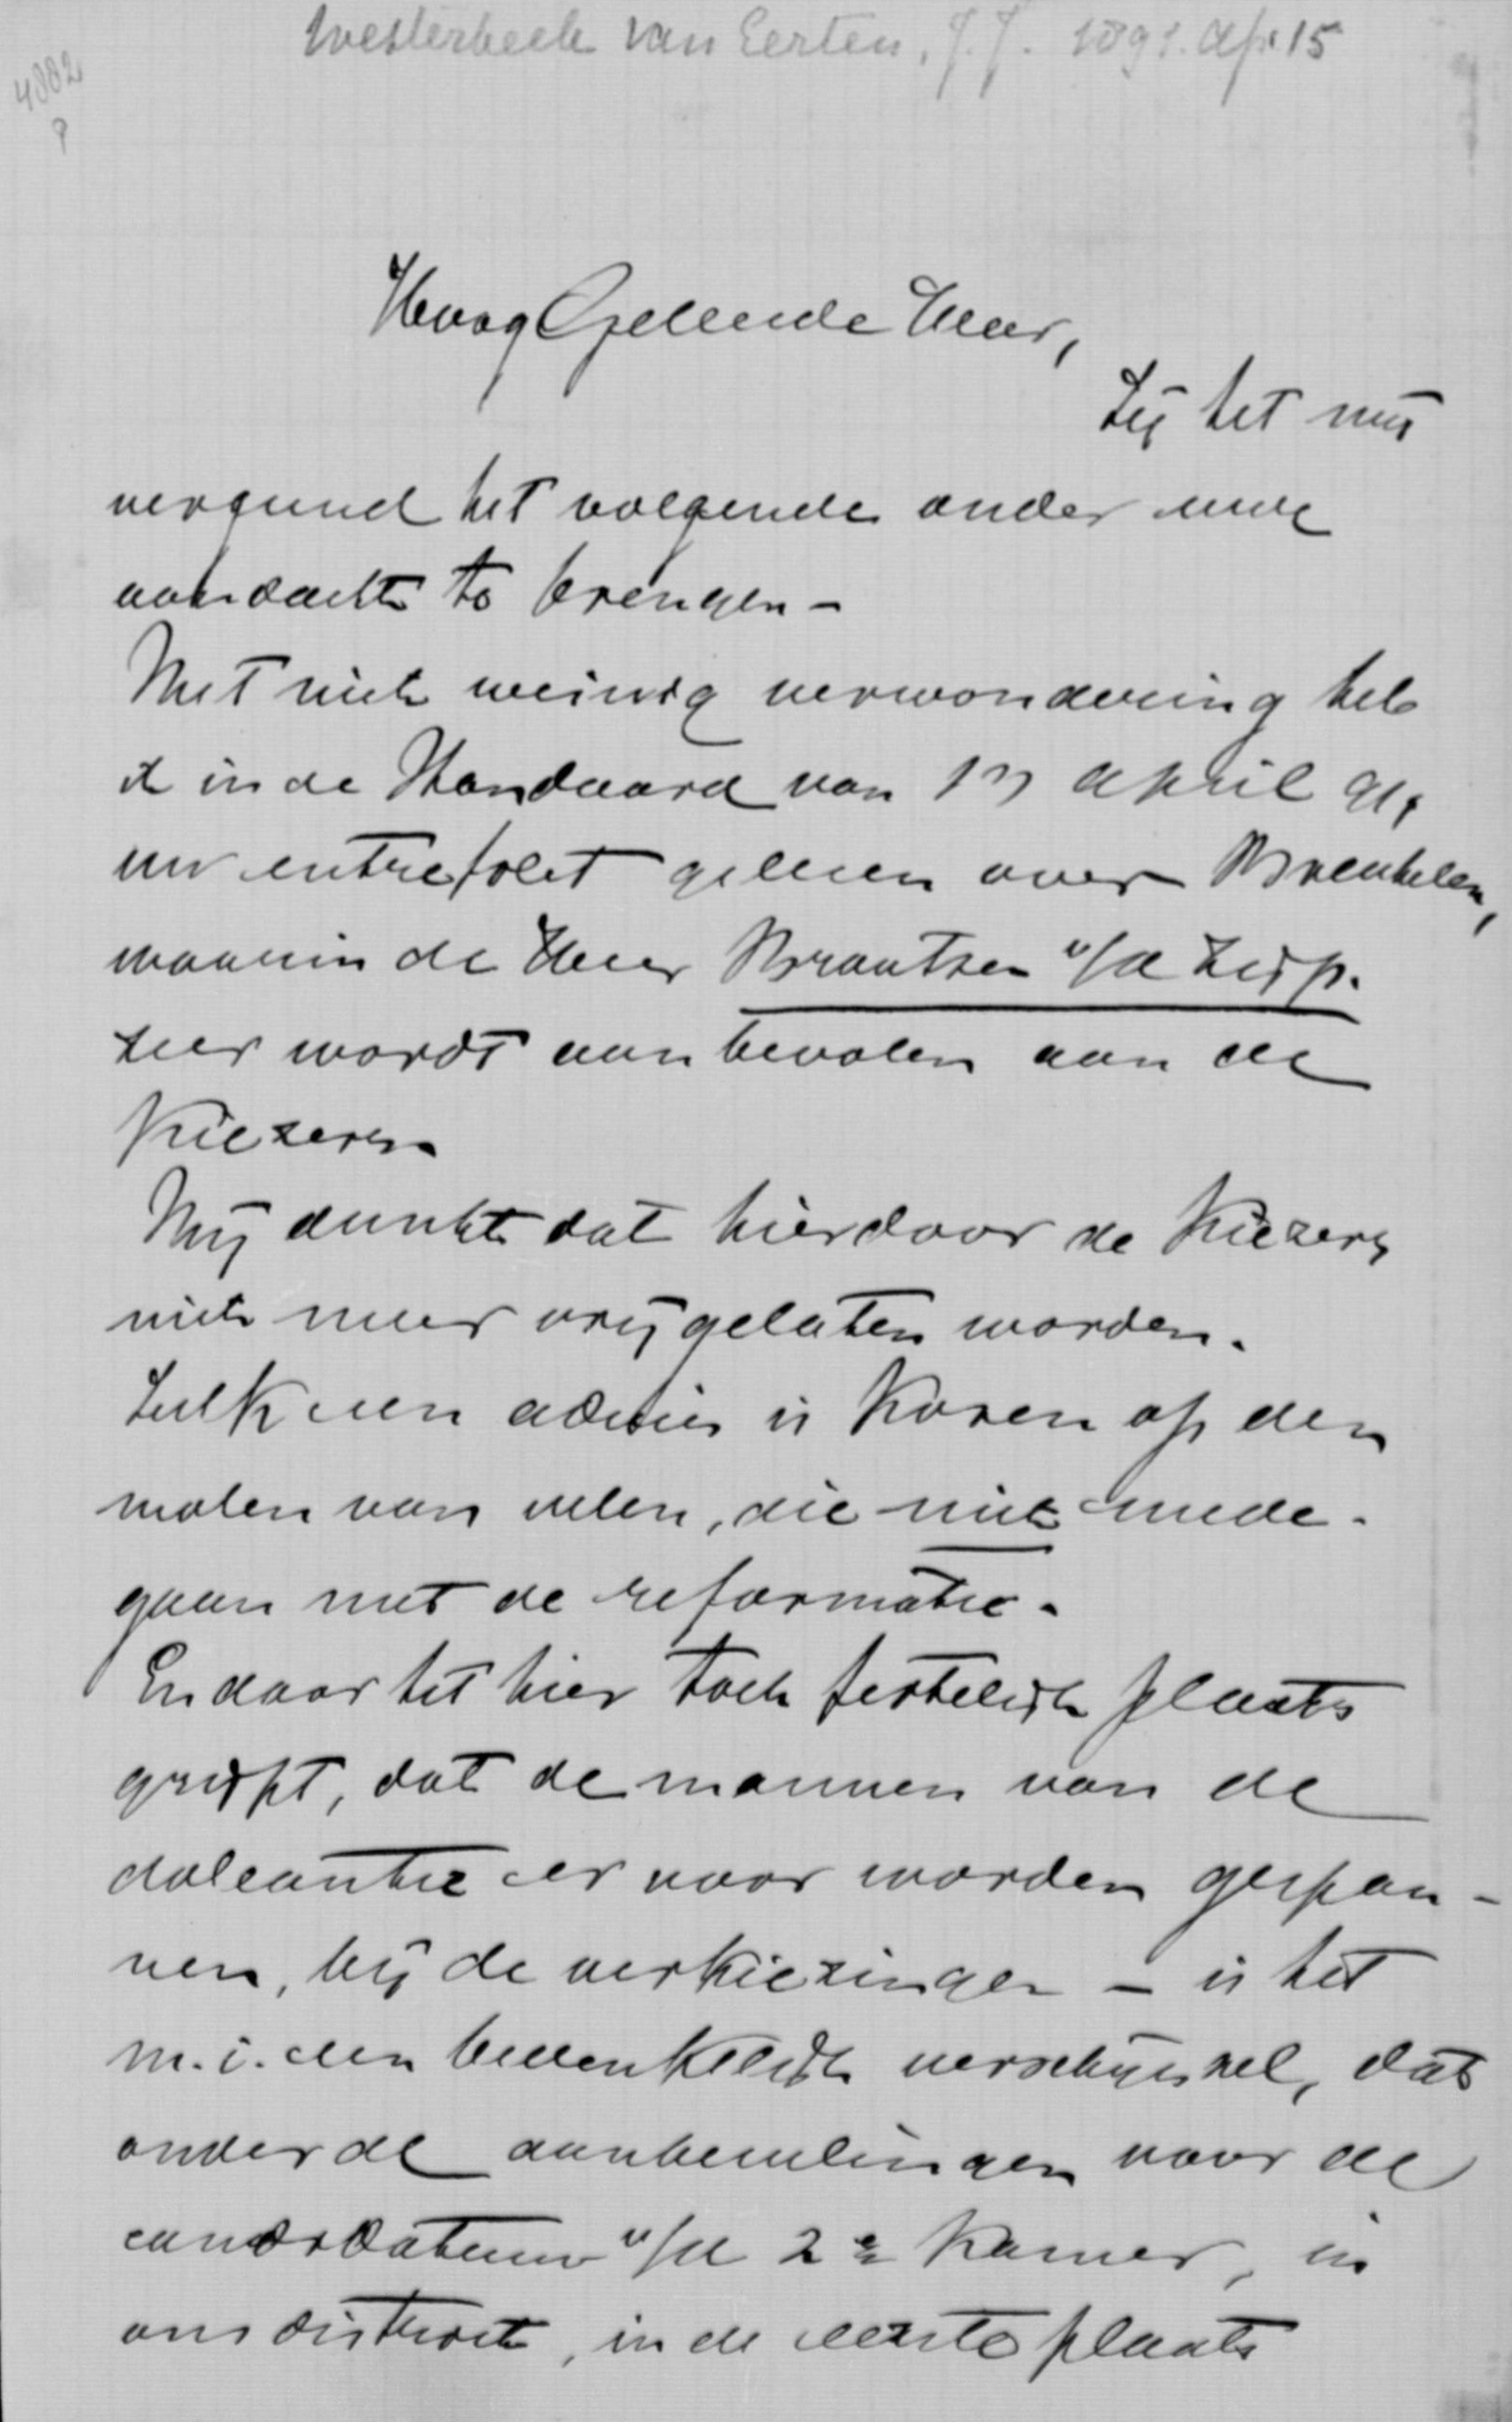 Westerbeek van Eerten, J.J. 1891. Apr. 15
4882
HoogGeleerde Heer,
Zij het mij
vergund het volgende onder uwe
aandacht te brengen –
Met niet weinig verwondering heb
ik in de Standaard van 13 april 91,
uw entrefilet gelezen over Breukelen,
waarin de Heer Brantsen v/d Zijp.
zeer wordt aanbevolen aan de
Kiezers.
Mij dunkt dat hierdoor de Kiezers
niet meer vrijgelaten worden.
Zulk een advies is Koren op den
molen van velen, die niet mede-
gaan met de reformatie.
En daar het hier toch feitelijk plaats
grijpt, dat de mannen van de
doleantie er voor worden gespan-
nen, bij de verkiezingen – is het
m.i. een bedenkelijk verschijnsel, dat
onder de aanbevelingen voor de
candidatuur v/d 2e Kamer, in
ons district, in de eerste plaats